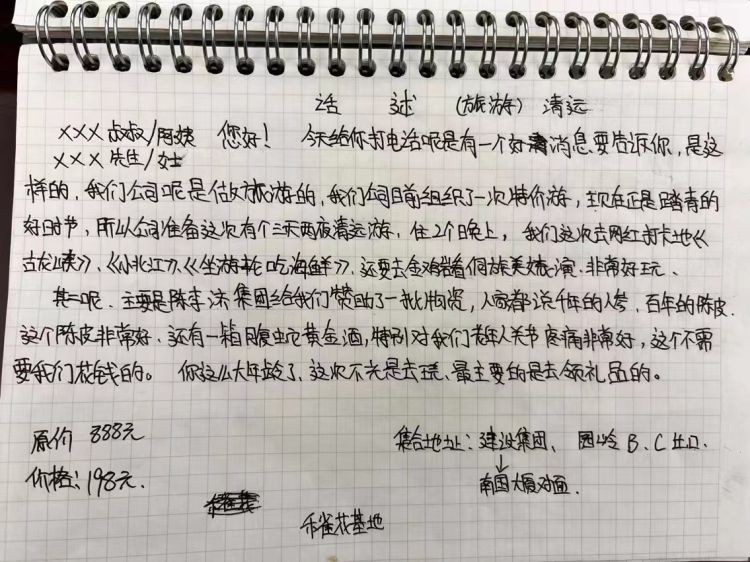 话 述 (旅游) 清远
××× 叔叔/阿姨 您好! 今天给你打电话呢是有一个好消息要告诉你,是这
××× 先生/女士
样的,我们公司呢是做旅游的,我们公司目前组织了一次特价游,现在正是踏青的
好时节,所以公司准备这次有个三天两夜清远游,住2个晚上,我们这次去网红打卡地《
古龙峡》、《小北江》、《坐游轮吃海鲜》、还要去金鸡岩看侗族美女表演、非常好玩、
其二呢、主要是陈李济集团给我们赞助了一批物资,人家都说千年的人参,百年的陈皮.
这个陈皮非常好、还有一箱腹蛇黄金酒,特别对我们老年人关节疼痛非常好,这个不需
要我们花钱的。 你这么大年龄了、这次不光是去玩、最主要的是去领礼品的。
原价 888元 集合地址:建设集团、园岭B、C出口.
价格:198元. ↓
南国大厦对面.
禾雀花基地